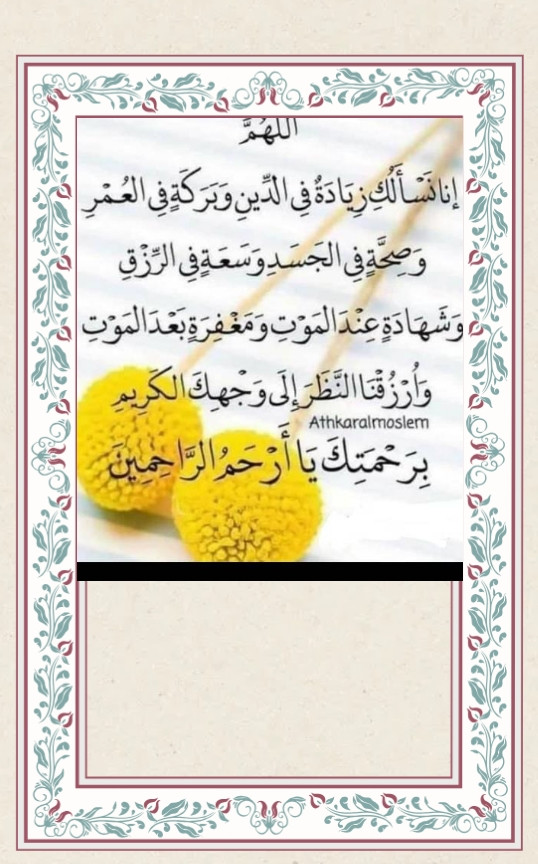 اللَّهُمَّ
إنا نَسْأَلُكَ زِيَادَةً فِي الدِّينِ وَبَرَكَةً فِي العُمْرِ
وَصِحَّةً فِي الجَسَدِ وَسَعَةً فِي الرِّزْقِ
وَشَهَادَةً عِنْدَ المَوْتِ وَمَغْفِرَةً بَعْدَ المَوْتِ
وَأُرْزُقْنَا النَّظَرَ إِلَى وَجْهِكَ الكَرِيمِ
Athkaralmoslem
بِرَحْمَتِكَ يَا أَرْحَمُ الرَّاحِمِينَ